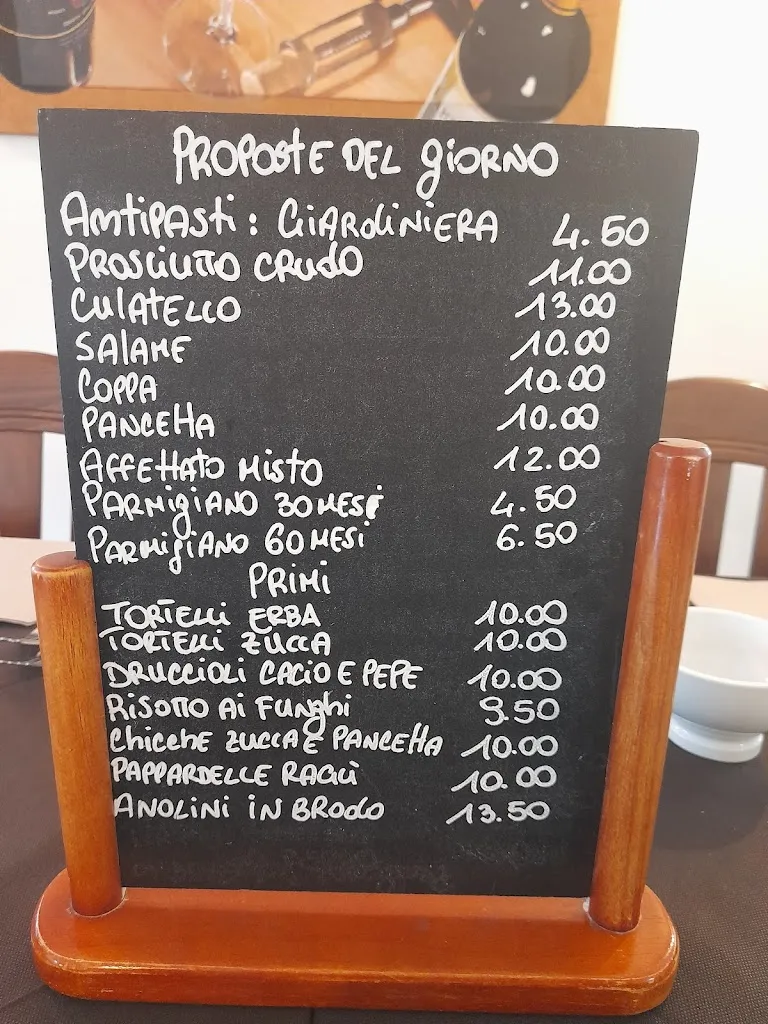 PROPOSTE DEL GIORNO
ANTIPASTI: GIARDINIERA 4.50
PROSCIUTTO CRUDO 11.00
CULATELLO 13.00
SALAME 10.00
COPPA 10.00
PANCETTA 10.00
AFFETTATO MISTO 12.00
PARMIGIANO 30 MESI 4.50
PARMIGIANO 60 MESI 6.50
PRIMI
TORTELLI ERBA 10.00
TORTELLI ZUCCA 10.00
DRUCCIOLI CACIO E PEPE 10.00
RISOTTO AI FUNGHI 9.50
CHICCHE ZUCCA E PANCETTA 10.00
PAPPARDELLE RAGÙ 10.00
ANOLINI IN BRODO 13.50